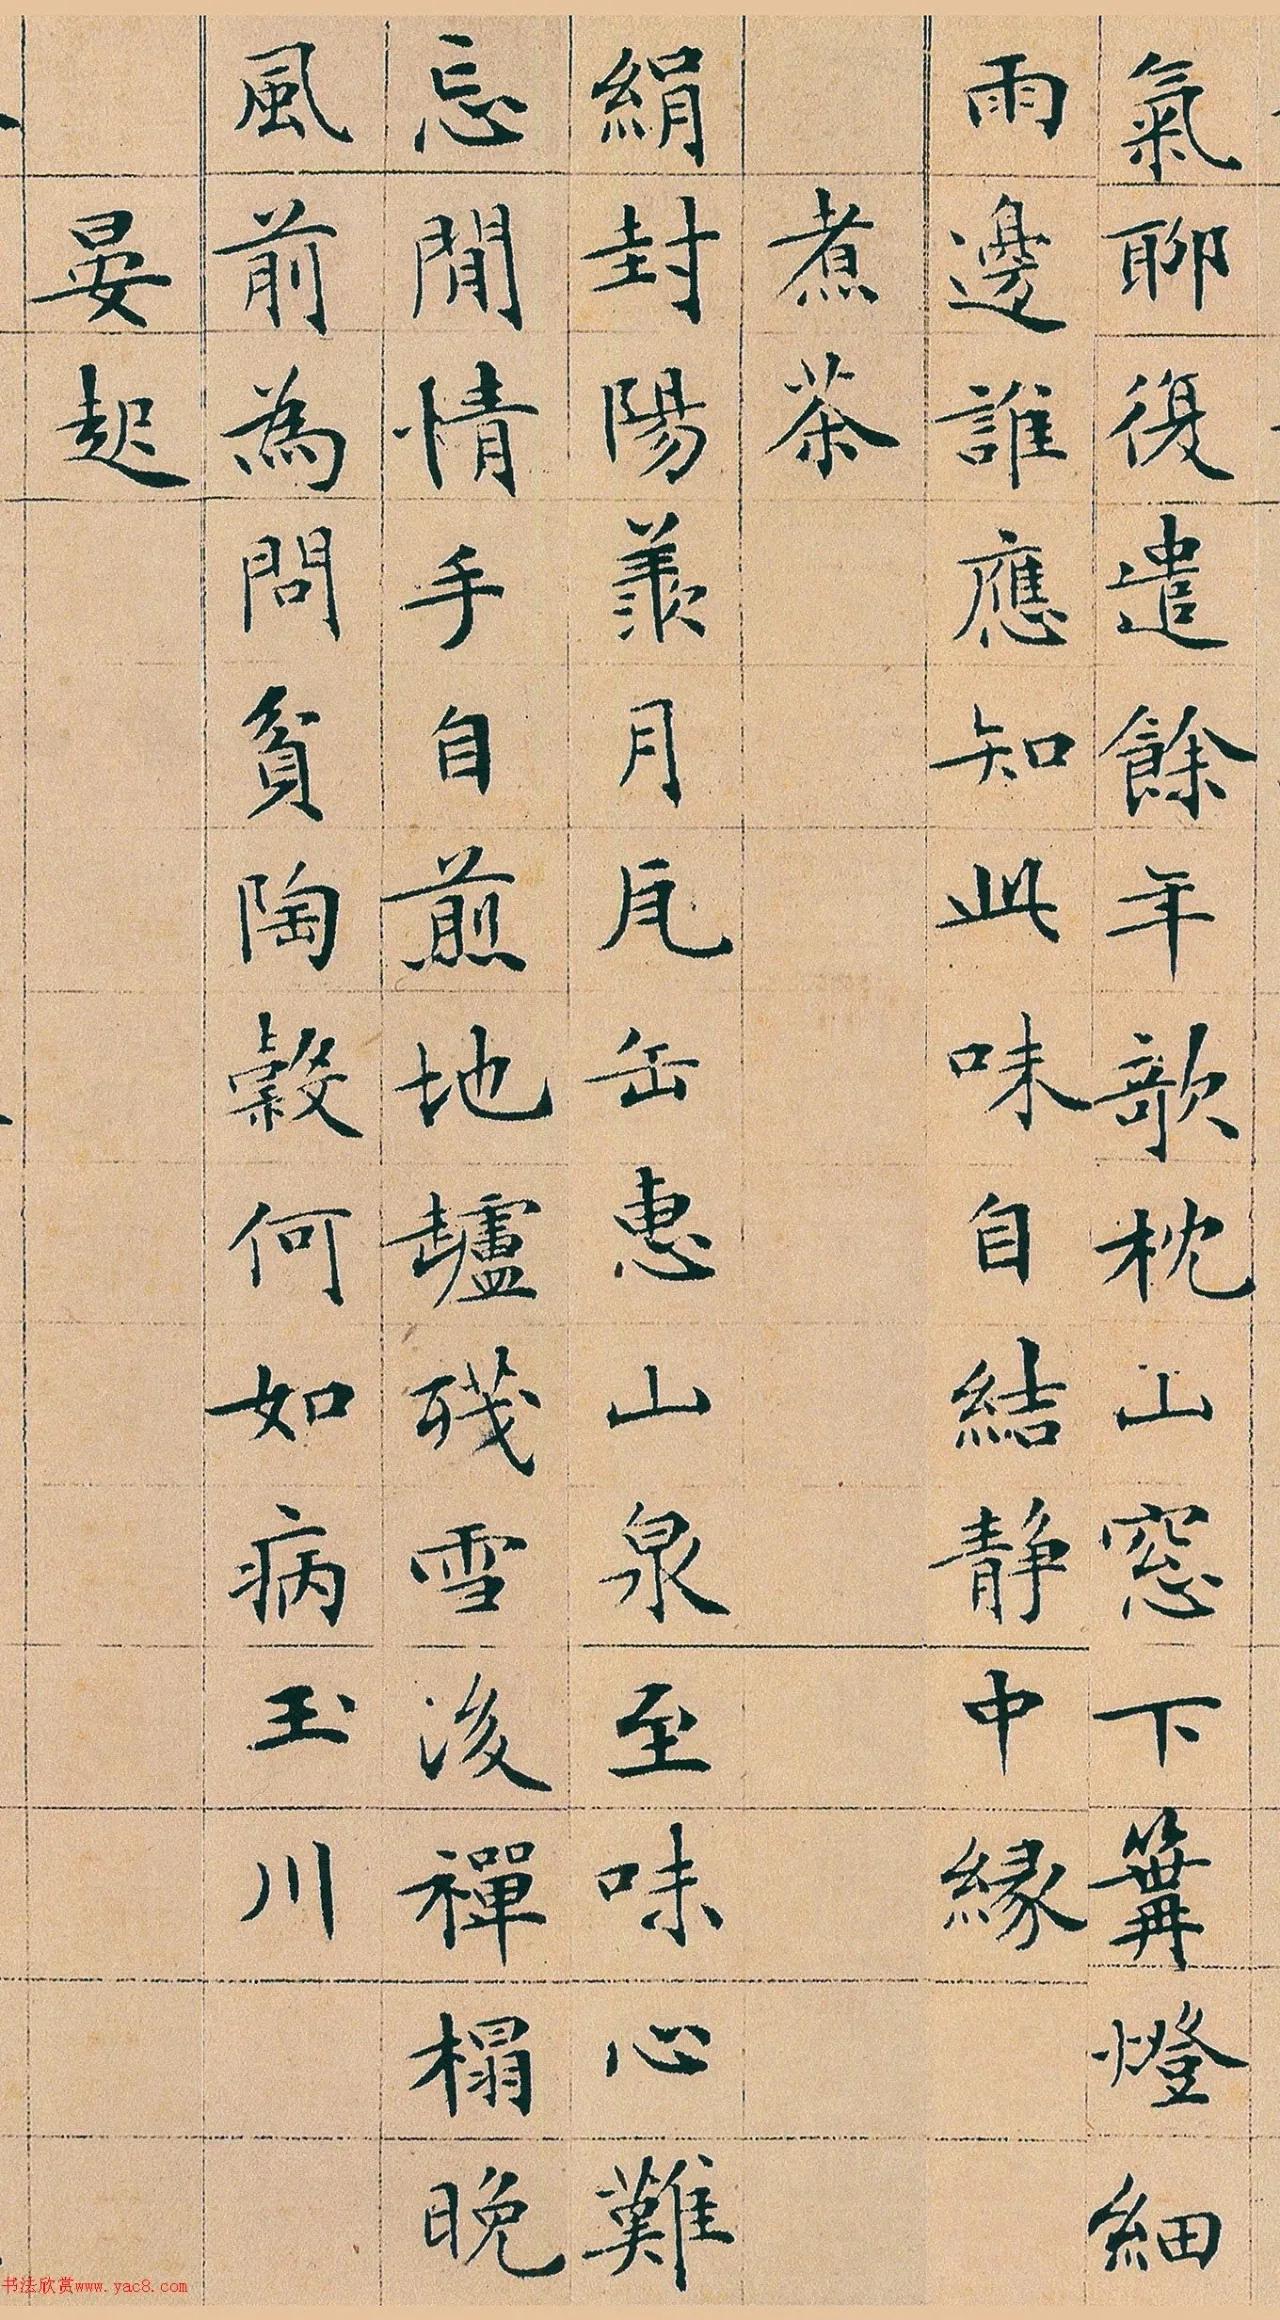 氣聊復遣餘年歌枕山窓下篝燈細
雨邊誰應知此味自結静中緣
煮茶
絹封陽羨月瓦缶惠山泉至味心難
忘閒情手自煎地罏殘雪後禪榻晚
風前為問貧陶穀何如病玉川
晏起
书法欣赏www.yac8.com